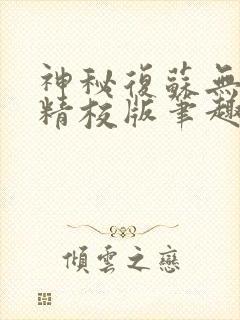 神秘復蘇無
精校版筆趣
傾雲之戀